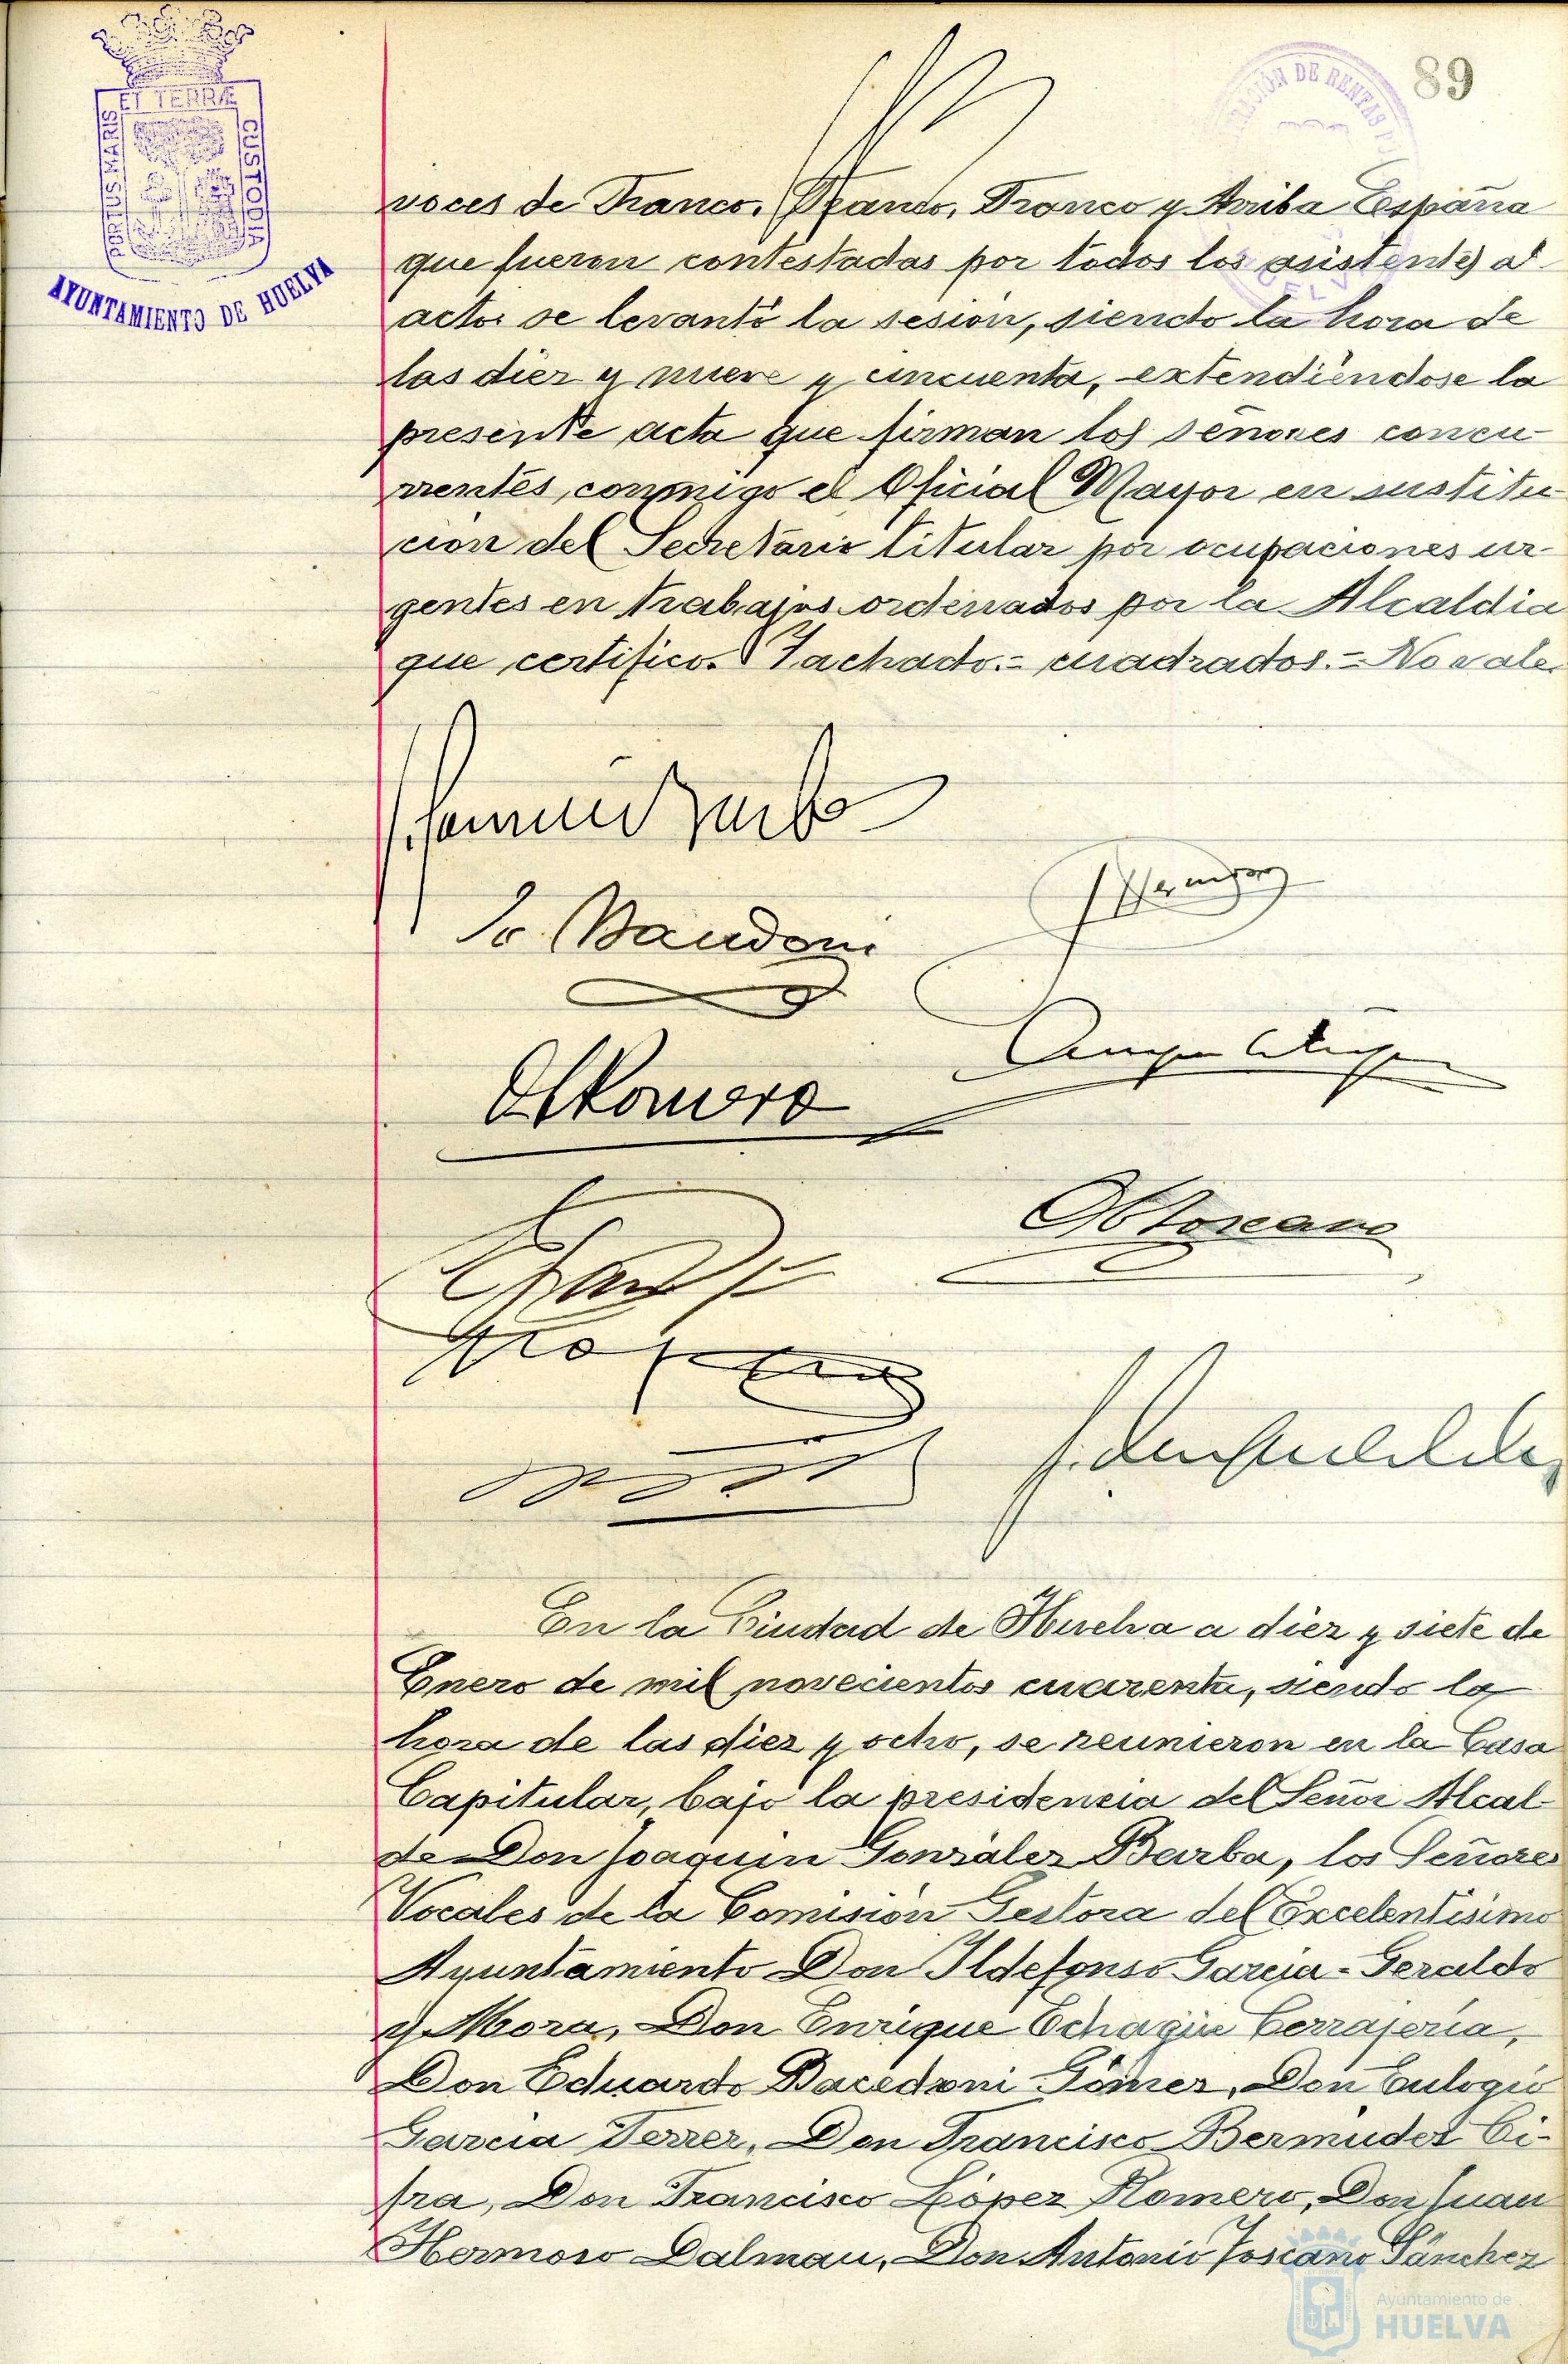 89
ET TERRÆ
PORTUS MARIS
CUSTODIA
AYUNTAMIENTO DE HUELVA
DE RENTAS
voces de Franco, Franco, Franco y Arriba España
que fueron contestadas por todos los asistentes al
acto, se levantó la sesión, siendo la hora de
las diez y nueve y cincuenta, extendiéndose la
presente acta que firman los señores concu-
rrentes, conmigo el Oficial Mayor en sustitu-
ción del Secretario titular por ocupaciones ur-
gentes en trabajos ordenados por la Alcaldia
que certifico. Tachado.= cuadrados.= No vale.
Romero
Toscano
En la Ciudad de Huelva a diez y siete de
Enero de mil novecientos cuarenta, siendo la
hora de las diez y ocho, se reunieron en la Casa
Capitular, bajo la presidencia del Señor Alcal-
de Don Joaquin González Barba, los Señores
Vocales de la Comisión Gestora del Excelentísimo
Ayuntamiento Don Ildefonso Garcia-Geraldo
y Mora, Don Enrique Echagüe Cerrajería,
Don Eduardo Bacedoni Gómez, Don Eulogio
Garcia Ferrer, Don Francisco Bermudez Ci-
fra, Don Francisco López Romero, Don Juan
Hermoso Dalmau, Don Antonio Toscano Sánchez
Ayuntamiento de
HUELVA